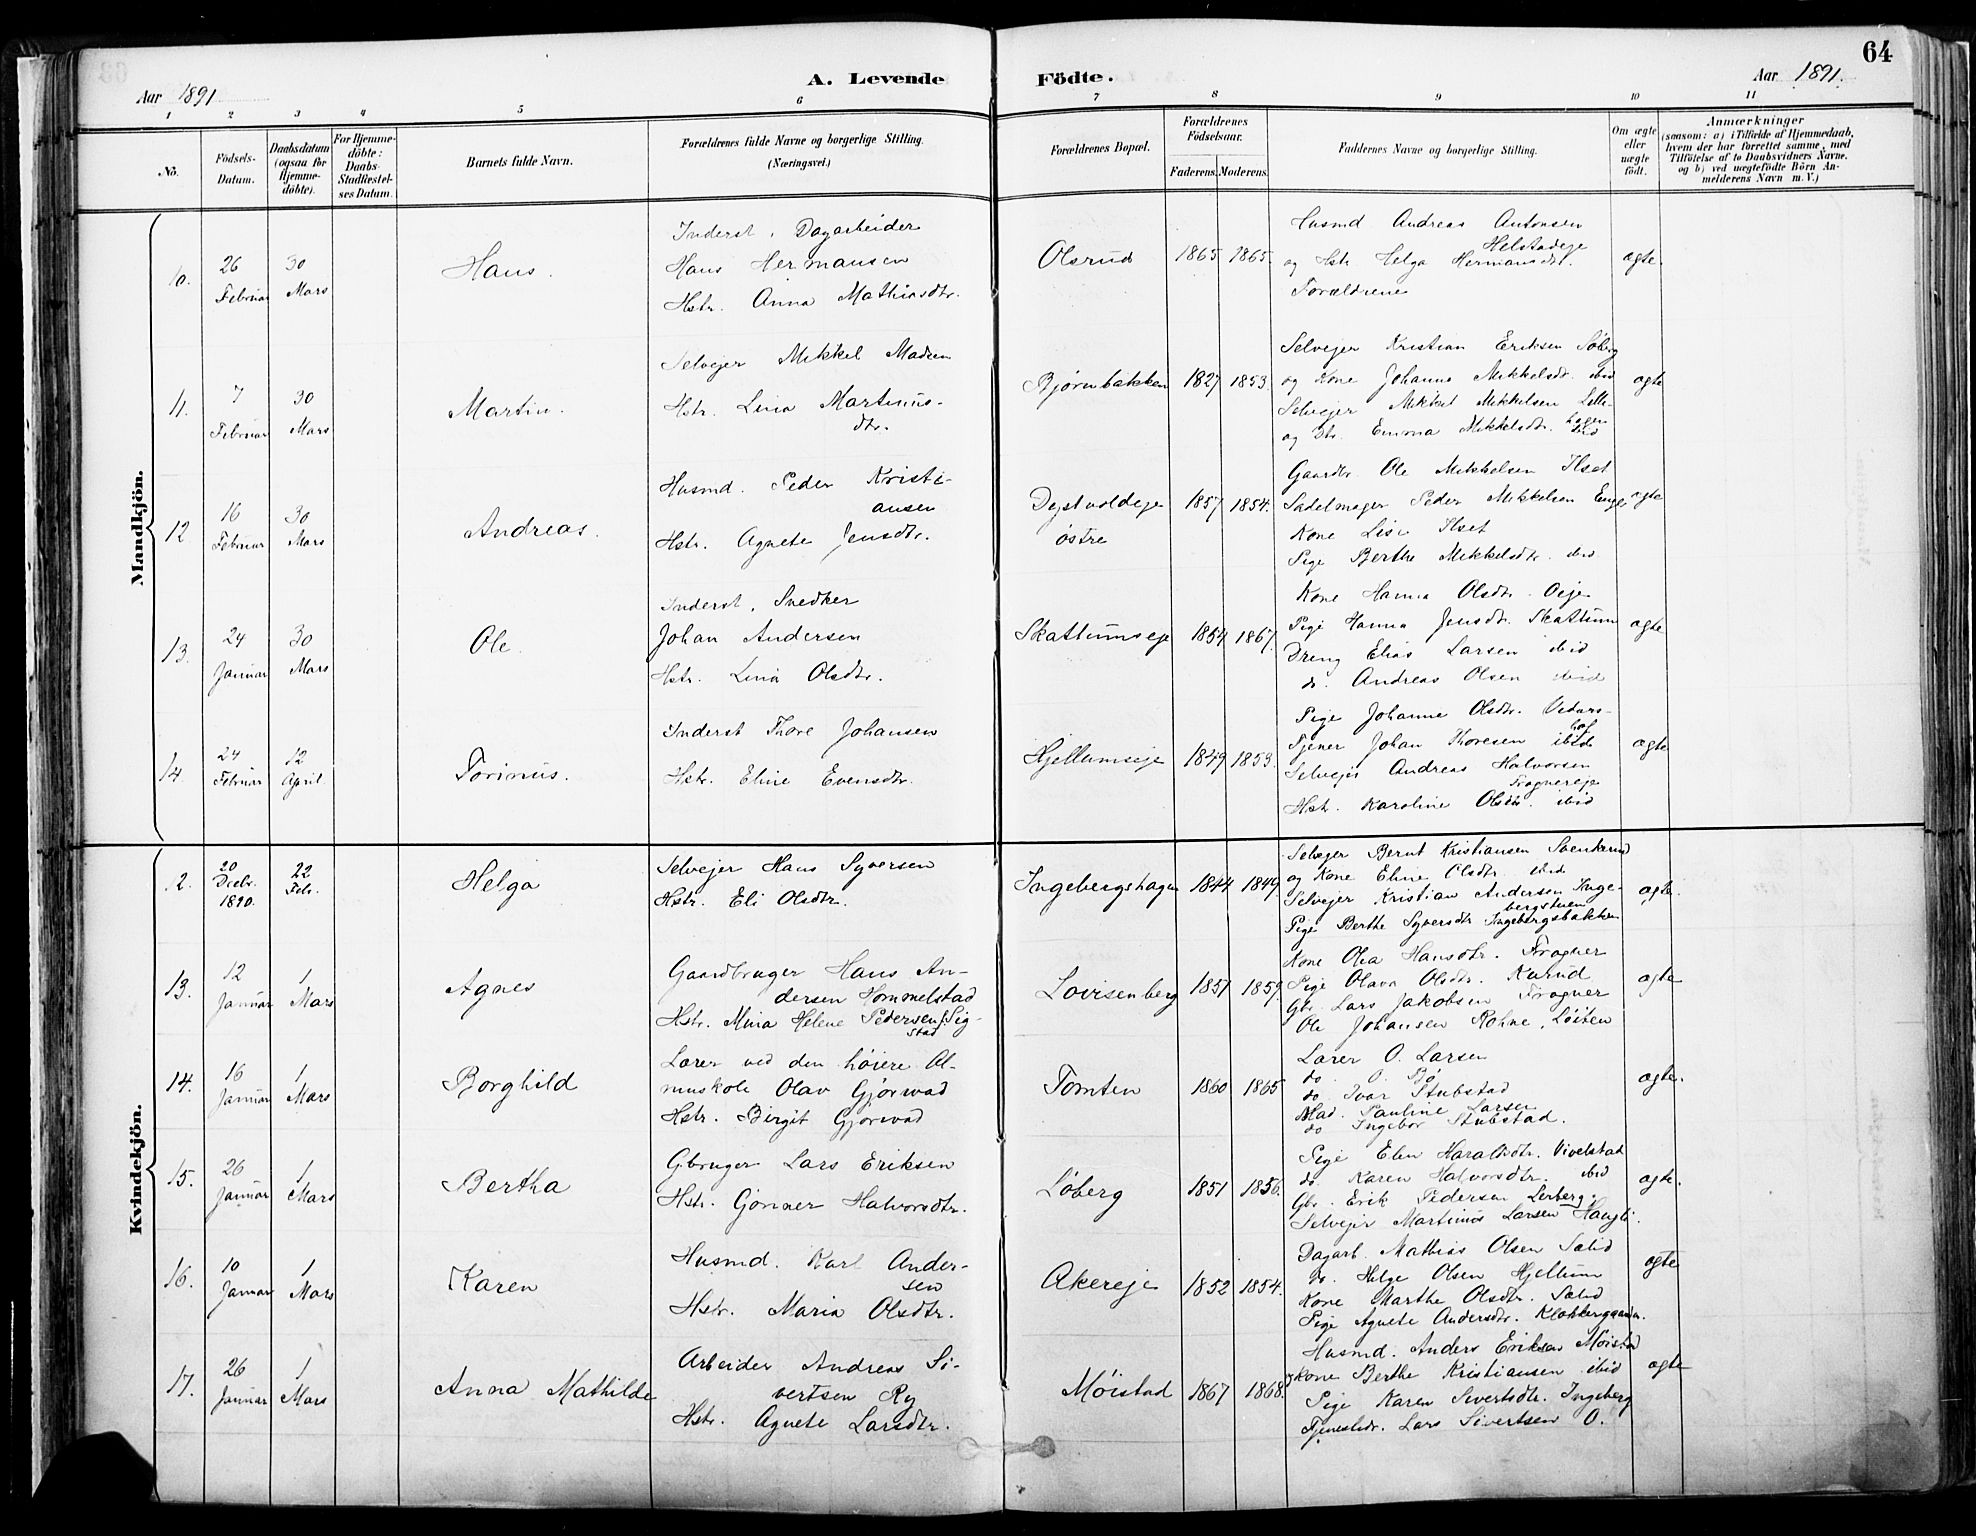 64
Aar 1891
A. Levende Födte.
Aar 1891.
1 2 3 4 5 6 7 8 9 10 11
No.
Födsels-
Datum.
Daabsdatum
(ogsaa for
Hjemme-
döbte).
For Hjemme-
döbte:
Daabs-
Stadfæstel-
ses Datum.
Barnets fulde Navn.
Forældrenes fulde Navne og borgerlige Stilling.
(Næringsvei.)
Forældrenes Bopæl.
Forældrenes
Födselsaar.
Faderens. Moderens.
Faddernes Navne og borgerlige Stilling.
Om ægte
eller
uægte
födt.
Anmærkninger
(saasom: a) i Tilfælde af Hjemmedaab,
hvem der har forrettet samme, med
Tilföielse af to Daabsvidners Navne.
og b) ved uægtefödte Börn An-
melderens Navn m. V.)
Mandkjön.
10.
26
Februar
30
Mars
Hans.
Inderst, Dagarbeider
Hans Hermansen
Hstr. Anna Mathiasdtr.
Olsrud
1865 1865.
Husmd Andreas Antonsen
Helstadeje
og Hstr Helga Hermansdtr.
Forældrene
ægte.
11.
7
Februar
30
Mars
Martin.
Selvejer Mikkel Madsen
Hstr. Lina Martinus-
dtr.
Bjørnbakken
1827 1853
Selvejer Kristian Eriksen Søberg
og Kone Johanne Mikkelsdtr. ibid
Selvejer Mikkel Mikkelsen Lille-
hagen
og Dtr. Emma Mikkelsdtr. ibid
ægte
12
16
Februar
30
Mars
Andreas.
Husmd. Peder Kristi-
ansen
Hstr. Agnete Jensdtr.
Dystvoldeje
østre
1857 1854.
Gaardbr. Ole Mikkelsen Ilset
Sadelmager Peder Mikkelsen Enge
Kone Lise Ilset
Pige Berthe Mikkelsdtr. ibid
ægte
13.
24
Januar
30
Mars
Ole.
Inderst, Snedker
Johan Andersen
Hstr. Lina Olsdtr.
Skattumseje
1854 1867.
Kone Hanna Olsdtr. Oeje
Pige Hanna Jensdtr. Skattum
Dreng Elias Larsen ibid
do. Andreas Olsen ibid
ægte
14.
24
Februar
12
April.
Torinus.
Inderst Thore Johansen
Hstr. Eline Evensdtr.
Hjellumseje
1849 1853.
Pige Johanne Olsdtr. Vidars-
hof
Tjener Johan Thoresen ibid
Selvejer Andreas Halvorsen
Frognereje
Hstr. Karoline Olsdtr. ibid
ægte
Kvindekjön.
12.
20
Decbr.
1890.
22
Febr.
Helga
Selvejer Hans Syversen
Hstr. Eli Olsdtr.
Ingebergshagen
1844 1849.
Selvejer Bernt Kristiansen Svenkerud
og Kone Eline Olsdtr. ibid
Selvejer Kristian Andersen Inge-
bergstuen
Pige Berthe Syversdtr Ingebergsbakken
ægte.
13.
12
Januar
1
Mars
Agnes
Gaardbruger Hans An-
dersen Hommelstad
Hstr. Mina Helene Pedersen f. Sig-
stad
Lovisenberg
1857 1859.
Kone Olea Hansdtr. Frogner
Pige Olava Olsdtr. Kurud
Gbr. Lars Jakobsen Frogner
Ole Johansen Rohne, Løiten
ægte
14.
16
Januar
1
Mars
Borghild
Lærer ved den høiere Al-
mueskole Olav Gjørwad
Hstr. Birgit Gjørwad
Tomten
1860 1865
Lærer O. Larsen
do. O. Bjø
do Ivar Stubstad
Mad. Pauline Larsen
do Ingebor Stubstad.
ægte.
15.
26
Januar
1
Mars
Bertha
Gbruger Lars Eriksen
Hstr. Gønner Halvorsdtr.
Løberg
1851 1856.
Pige Elen Haraldsdtr. Vivelstad
do. Karen Halvorsdtr. ibid
Gbr. Erik Pedersen Lerberg.
Selvejer Martinus Larsen Haugli.
ægte.
16.
10
Januar
1
Mars
Karen
Husmd. Karl Ander-
sen
Hstr. Maria Olsdtr.
Akereje
1852 1854.
Dagarb. Mathias Olsen Sælid
do. Helge Olsen Hjellum
Kone Marthe Olsdtr. Sælid
Pige Agnete Andersdtr. Klokkergaarden.
ægte
17.
26
Januar
1
Mars
Anna Mathilde
Arbeider Andreas Si-
vertsen Ry
Hstr. Agnete Larsdtr.
Møistad
1867 1868.
Husmd. Anders Eriksen Møistad
og Kone Berthe Kristiansen ibid
Pige Karen Sivertsdtr. Ingeberg
Tjenestedr. Lars Sivertsen O.
ægte